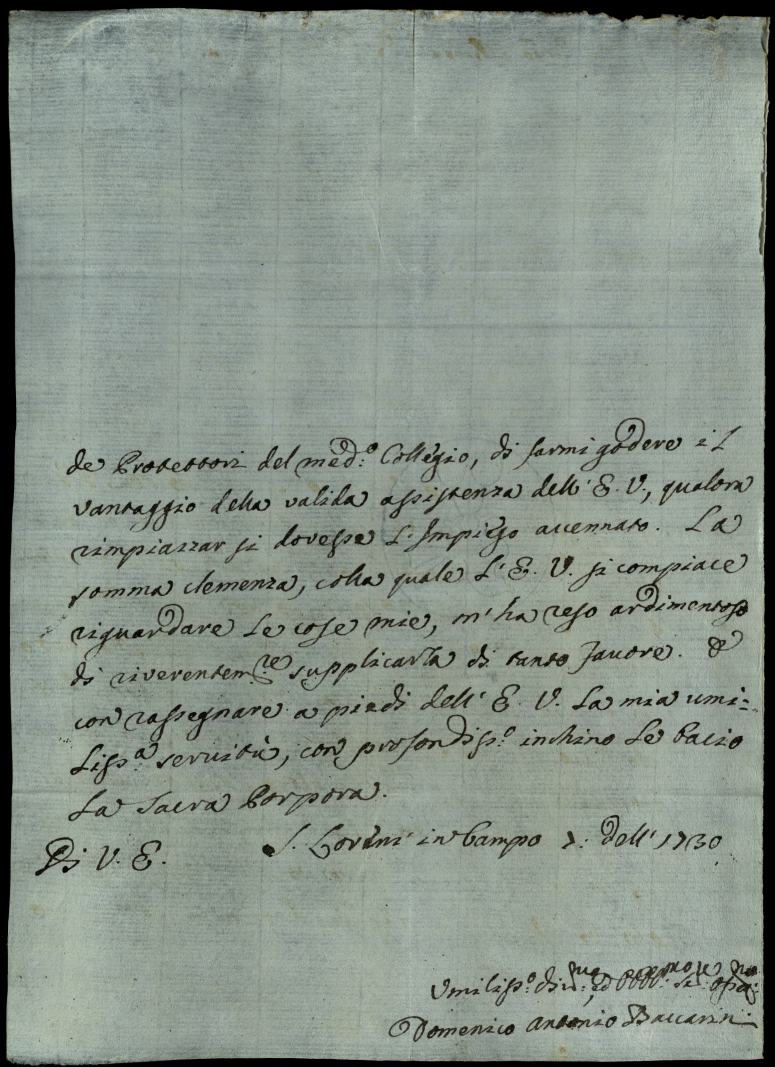 de Protettori del med:º Collegio, di farmi godere il
vantaggio della valida assistenza dell' E. V., qualora
rimpiazzar si dovesse l'Impiego accennato. La
somma clemenza, colla quale l'E. V. si compiace
riguardare le cose mie, m'ha reso ardimentoso
di riverentem.te supplicarla di tanto favore. &
con rassegnare a piedi dell' E. V. la mia umi=
liss.a servitù, con profondiss.º inchino le bacio
la Sacra Porpora.
Di V. E. S. Loren: in Campo 7: dell' 1730
Umiliss.º ed
Domenico Antonio Baccarini